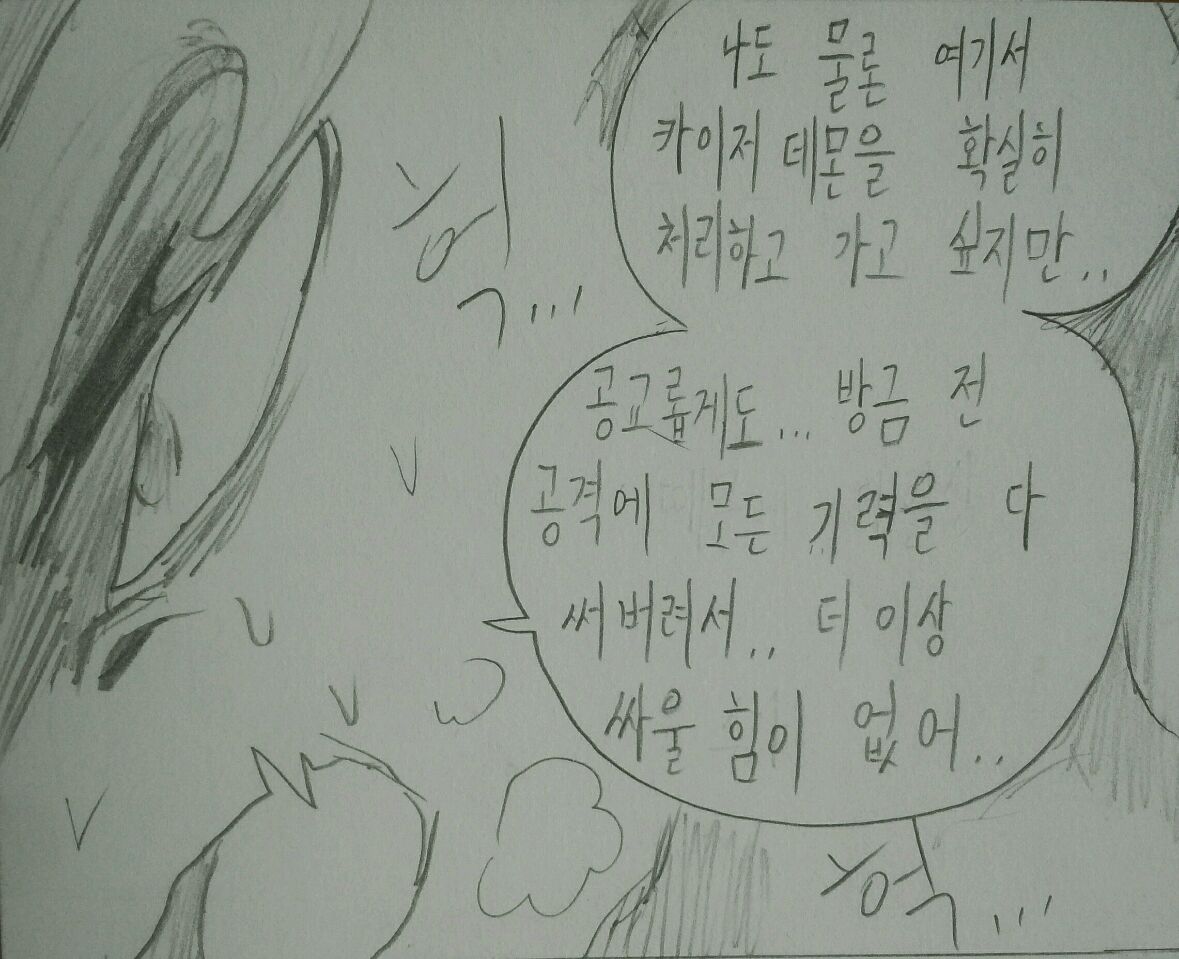 나도 물론 여기서
카이저 데몬을 확실히
처리하고 가고 싶지만..
헉...
공교롭게도... 방금 전
공격에 모든 기력을 다
써버려서.. 더 이상
싸울 힘이 없어..
헉...